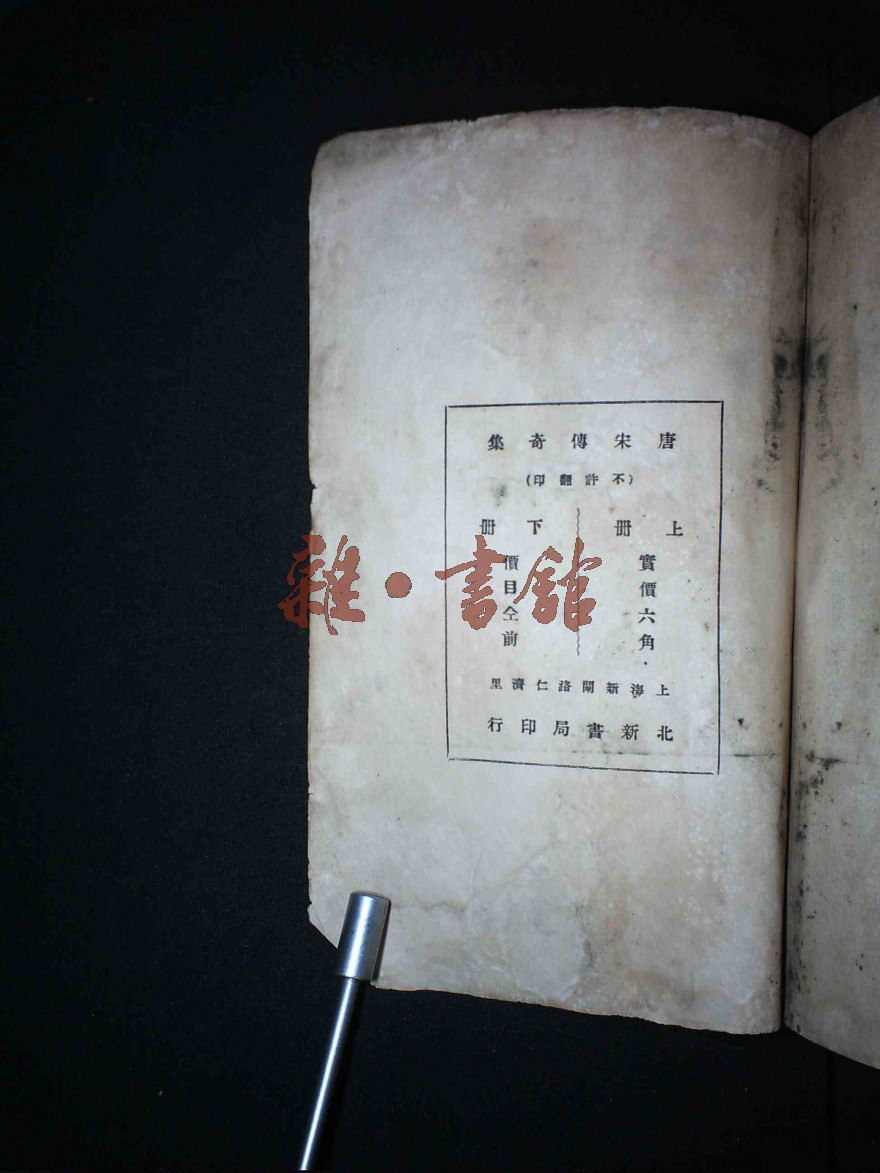 唐宋傳奇集
(不許翻印)
上册
實價六角.
下册
價目仝前
上海新閘路仁濟里
北新書局印行
雜·書館